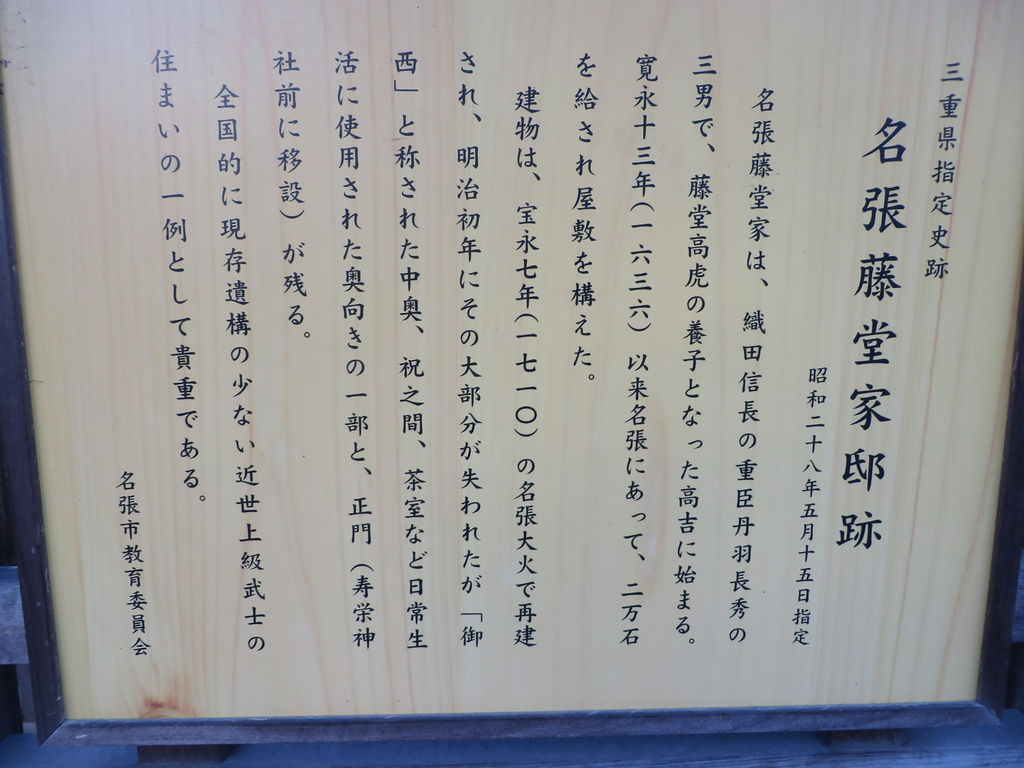 三重県指定史跡
名張藤堂家邸跡
昭和二十八年五月十五日指定
名張藤堂家は、織田信長の重臣丹羽長秀の
三男で、藤堂高虎の養子となった高吉に始まる。
寛永十三年(一六三六)以来名張にあって、二万石
を給され屋敷を構えた。
建物は、宝永七年(一七一〇)の名張大火で再建
され、明治初年にその大部分が失われたが「御
西」と称された中奥、祝之間、茶室など日常生
活に使用された奥向きの一部と、正門(寿栄神
社前に移設)が残る。
全国的に現存遺構の少ない近世上級武士の
住まいの一例として貴重である。
名張市教育委員会